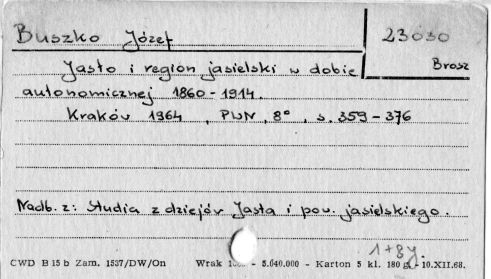 Buszko Józef
23030
Brosz
Jasło i region jasielski w dobie
autonomicznej 1860-1914.
Kraków 1964, PWN, 8°, s. 359-376
Nadb. z: Studia z dziejów Jasła i pow. jasielskiego.
1+8j.
CWD B 15 b Zam. 1537/DW/On Wrak - 5.040.000 - Karton 5 kl. 180 g - 10.XII.68.